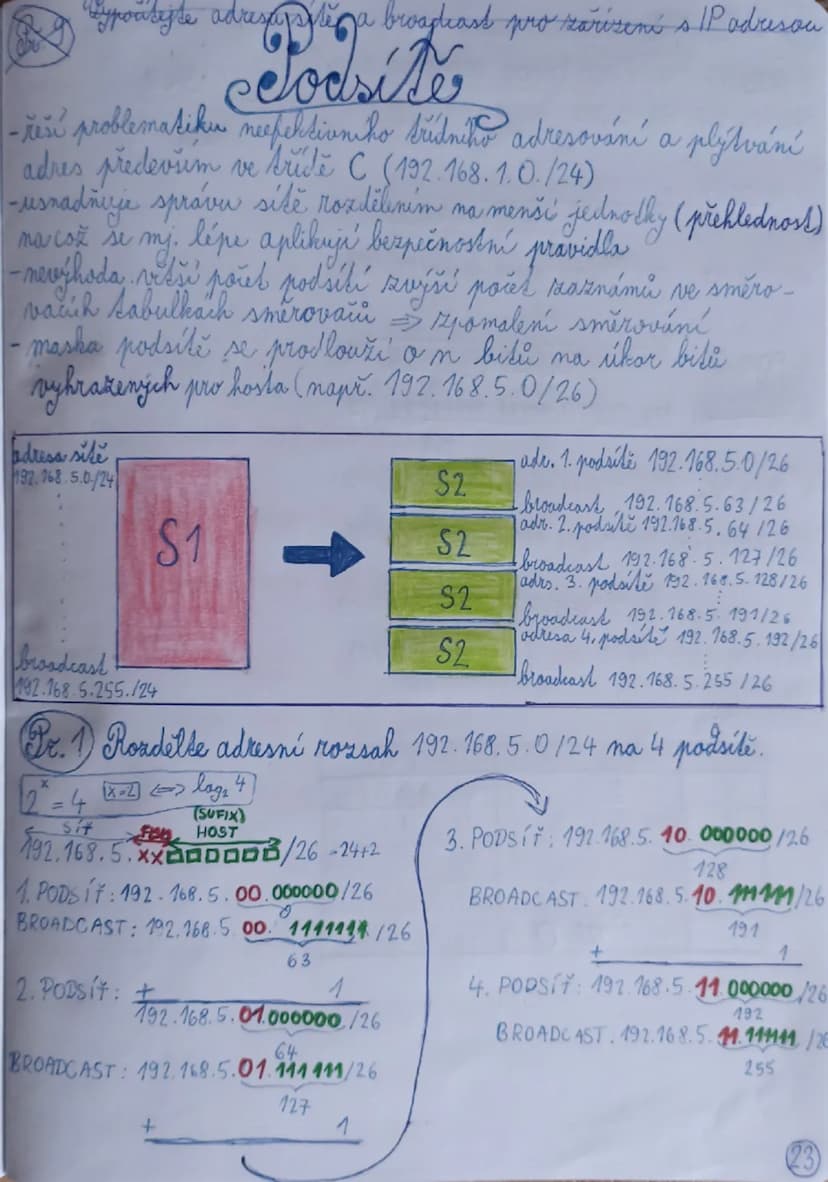 Př. 9 Vypočítejte adresu sítě a broadcast pro zařízení s IP adresou
Podsítě
-řeší problematiku neefektivního třídního adresování a plýtvání
adres především ve třídě C (192.168.1.0./24)
-usnadňuje správu sítě rozdělením na menší jednotky (přehlednost)
na což se mj. lépe aplikují bezpečnostní pravidla
-nevýhoda větší počet podsítí zvýší počet záznamů ve směro-
vacích tabulkách směrovačů => zpomalení směrování
- maska podsítě se prodlouží o n bitů na úkor bitů
vyhrazených pro hosta (např. 192.168.5.0/26)
adresa sítě
192.168.5.0/24
S1
broadcast
192.168.5.255./24
S2
adr. 1. podsítě 192.168.5.0/26
broadcast 192.168.5.63/26
S2
adr. 2. podsítě 192.168.5.64/26
broadcast 192.168.5.127/26
S2
adrs. 3. podsítě 192.168.5.128/26
broadcast 192.168.5.191/26
S2
adresa 4. podsítě 192.168.5.192/26
broadcast 192.168.5.255/26
Př. 1 Rozdělte adresní rozsah 192.168.5.0/24 na 4 podsítě.
2^x = 4 x=2 <=> log₂ 4
(SUFIX)
SÍŤ HOST
192.168.5.xx□□□□□□/26 -24+2
1. PODSÍŤ: 192.168.5.00.000000/26
0
BROADCAST: 192.168.5 00. 1111111/26
63
2. PODSÍŤ: + 1
192.168.5.01.000000/26
64
BROADCAST: 192.168.5.01.111111/26
127
+ 1
3. PODSÍŤ: 192.168.5.10.000000/26
128
BROADCAST. 192.168.5.10.111111/26
191
+ 1
4. PODSÍŤ: 192.168.5.11.000000/26
192
BROADCAST. 192.168.5.11.111111/26
255
23